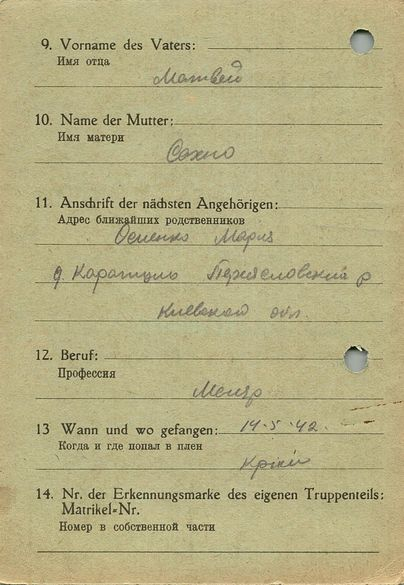 9. Vorname des Vaters:
Имя отца
Матвей
10. Name der Mutter:
Имя матери
Сахно
11. Anschrift der nächsten Angehörigen:
Адрес ближайших родственников
Осиенко Мария
д. Каратуль Переясловский р
Киевской обл.
12. Beruf:
Профессия
13 Wann und wo gefangen: 14.5.42.
Когда и где попал в плен
14. Nr. der Erkennungsmarke des eigenen Truppenteils:
Matrikel=Nr.
Номер в собственной части